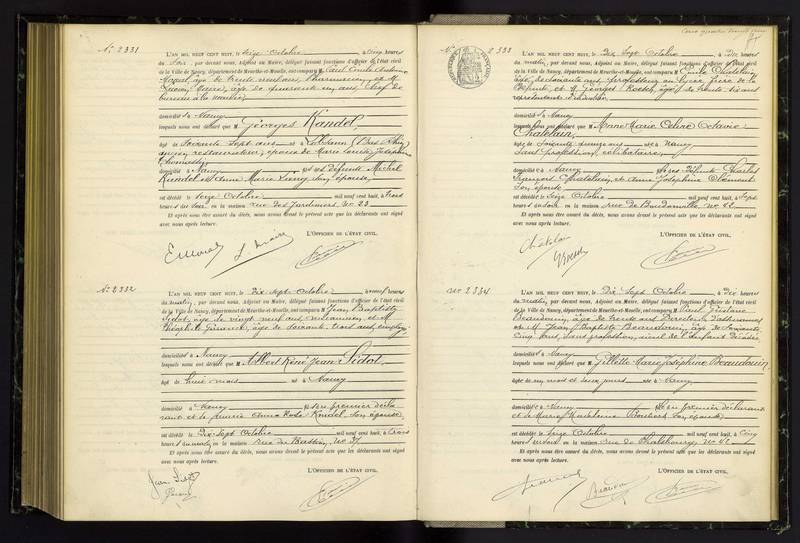 No 2331
L'AN MIL NEUF CENT HUIT, le Seize Octobre, à Cinq heures
du Soir, par devant nous, Adjoint au Maire, délégué faisant fonctions d'officier de l'état civil
de la Ville de Nancy, département de Meurthe-et-Moselle, ont comparu M. Paul Emile
âgé de trente neuf ans, Pharmacien, et M.
âgé de quarante un ans, Chef de
bureau à la mairie
domiciliés à Nancy
lesquels nous ont déclaré que M Georges Kandel,
âgé de Soixante Sept ans né à (Bas Rhin)
restaurateur, époux de Marie Louise Joséphine
domicilié à Nancy fils des défunts Michel
Kandel et Anne Marie son épouse,
est décédé le Seize Octobre mil neuf cent huit, à trois
heures du soir en la maison rue des Jardiniers, No 23
Et après nous être assuré du décès, nous avons dressé le présent acte que les déclarants ont signé
avec nous après lecture.
L'OFFICIER DE L'ÉTAT CIVIL,
No 2332
L'AN MIL NEUF CENT HUIT, le Dix Sept Octobre à neuf heures
du matin, par devant nous, Adjoint au Maire, délégué faisant fonctions d'officier de l'état civil
de la Ville de Nancy, département de Meurthe-et-Moselle, ont comparu M Jean Baptiste
Sidot, âgé de vingt neuf ans, mécanicien, et M.
âgé de soixante trois ans, employé
domiciliés à Nancy
lesquels nous ont déclaré que M Albert René Jean Sidot,
âgé de huit mois né à Nancy
domicilié à Nancy fils du premier décla
rant et de Marie Anna Rosa Kandel, son épouse,
est décédé le Dix Sept Octobre mil neuf cent huit, à trois
heures du matin en la maison rue de No 37
Et après nous être assuré du décès, nous avons dressé le présent acte que les déclarants ont signé
avec nous après lecture.
L'OFFICIER DE L'ÉTAT CIVIL,
Jean Sidot
No 2333
L'AN MIL NEUF CENT HUIT, le Dix Sept Octobre, à Dix heures
du matin, par devant nous, Adjoint au Maire, délégué faisant fonctions d'officier de l'état civil
de la Ville de Nancy, département de Meurthe-et-Moselle, ont comparu M Emile Chatelain,
âgé de ans, professeur au Lycée, frère de la
défunte, et M. Georges âgé de trente six ans
représentant
domiciliés à Nancy
lesquels nous ont déclaré que M Anne Marie Celine Octavie
Chatelain,
âgée de Soixante quinze ans née à Nancy
Sans profession, célibataire,
domiciliée à Nancy fille des défunts Charles
François Chatelain, et Anne Joséphine Clément
Son épouse
est décédée le Seize Octobre mil neuf cent huit, à Sept
heures du soir en la maison rue de Boudonville, No 42
Et après nous être assuré du décès, nous avons dressé le présent acte que les déclarants ont signé
avec nous après lecture.
L'OFFICIER DE L'ÉTAT CIVIL,
Chatelain
No 2334
L'AN MIL NEUF CENT HUIT, le Dix Sept Octobre, à Dix heures
du matin, par devant nous, Adjoint au Maire, délégué faisant fonctions d'officier de l'état civil
de la Ville de Nancy, département de Meurthe-et-Moselle, ont comparu M Paul Gustave
Beaudouin, âgé de trente ans, Directeur d'assurances
et M. Jean Baptiste Beaudouin, âgé de soixante
Cinq ans, sans profession, aïeul de l'enfant décédée
domiciliés à Nancy
lesquels nous ont déclaré que M Gillette Marie Joséphine Beaudouin,
âgée de un mois et deux jours née à Nancy
domiciliée à Nancy fille du premier déclarant
et de Marie Madeleine son épouse
est décédée le Seize Octobre mil neuf cent huit, à Cinq
heures du soir en la maison rue de No 42
Et après nous être assuré du décès, nous avons dressé le présent acte que les déclarants ont signé
avec nous après lecture.
L'OFFICIER DE L'ÉTAT CIVIL,